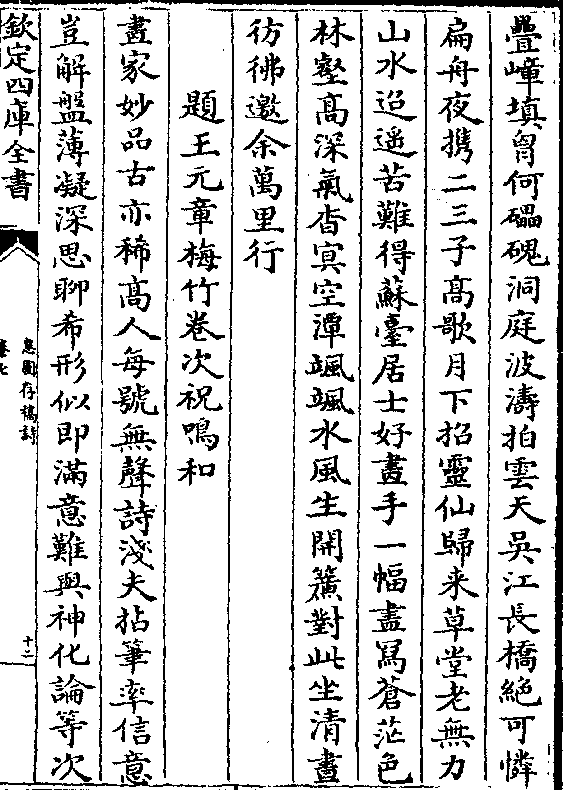 疊嶂填胷何礧磈洞庭波濤拍雲天吳江長橋絶可憐
扁舟夜攜二三子髙歌月下招靈仙歸来草堂老無力
山水迢遥苦難得蘇臺居士好畫手一幅盡冩蒼茫色
林壑髙深氣杳冥空潭颯颯水風生開簾對此坐清晝
彷彿邀余萬里行
題王元章梅竹卷次祝鳴和
畫家妙品古亦稀髙人每號無聲詩淺夫拈筆率信意
豈解盤薄凝深思聊希形似即滿意難與神化論等次
欽定四庫全書
存稿詩
卷七
十二